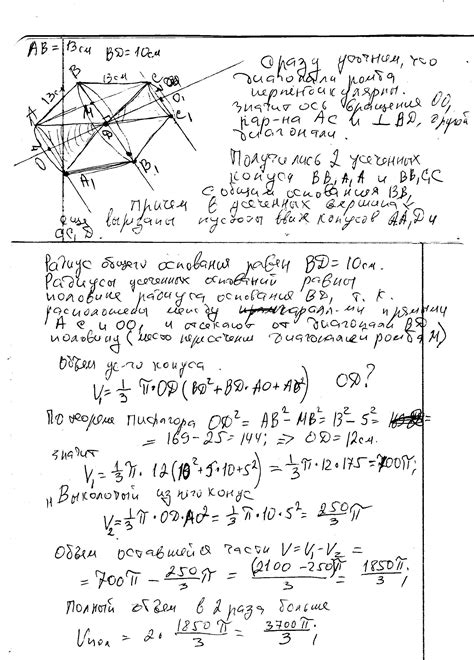 AB = 13см BD = 10см
13см
13см
B
C
A
M
O₁
C₁
D
O
B₁
A₁
Сразу уточним, что
диагонали ромба
перпендикулярны.
значит ось вращения OO₁
пар-на AC и ⊥ BD, другой
диагонали.
Получились 2 усеченных
конуса BB₁A₁A и BB₁C₁C
с общим основания BB₁
Причем в усеченных вершина
еще вырезаны пустоты двух конусов AA₁D и
CC₁D.
Радиус общего основания равен BD = 10см.
Радиусы усеченных оснований равны
половине радиуса основания BD, т. к.
расположены между паралл-ми прямыми
AC и OO₁ и отсекают от диагонали BD
половину (место пересечения диагоналей ромба M)
Объем ус-го конуса
V₁ = 1/3 π·OD(BD² + BD·AO + AO²) OD?
По теореме Пифагора OD² = AB² - MB² = 13² - 5² =
= 169 - 25 = 144; => OD = 12см.
значит
V₁ = 1/3 π·12(10² + 5·10 + 5²) = 1/3 π·12·175 = 700π;
Выколотый из него конус
V₂ = 1/3 π·OD·AO² = 1/3 π·10·5² = 250/3 π
Объем оставшейся части V = V₁ - V₂ =
= 700π - 250/3 π = (2100 - 250)π/3 = 1850π/3;
Полный объем в 2 раза больше
Vпол = 2·1850π/3 = 3700π/3;